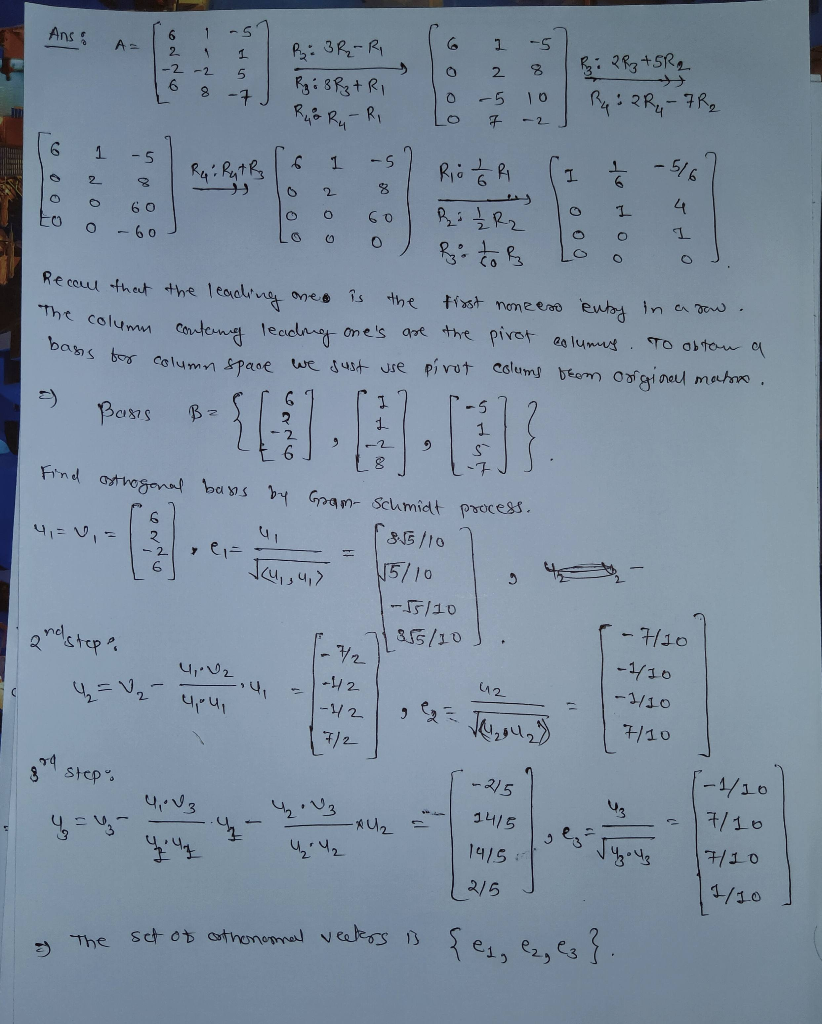 Ans: A = [6 1 -5; 2 1 1; -2 -2 5; 6 8 -7] R₂: 3R₂ - R₁, R₃: 3R₃ + R₁, R₄: R₄ - R₁ → [6 1 -5; 0 2 8; 0 -5 10; 0 7 -2] R₃: 2R₃ + 5R₂, R₄: 2R₄ - 7R₂ →
[6 1 -5; 0 2 8; 0 0 60; 0 0 -60] R₄: R₄ + R₃ → [6 1 -5; 0 2 8; 0 0 60; 0 0 0] R₁: 1/6 R₁, R₂: 1/2 R₂, R₃: 1/60 R₃ → [1 1/6 -5/6; 0 1 4; 0 0 1; 0 0 0].
Recall that the leading ones is the first nonzero entry in a row.
The column containg leading one's are the pivot columns. To obtain a
basis for column space we just use pivot colums from original matrix.
⇒ Basis B = { [6; 2; -2; 6], [1; 1; -2; 8], [-5; 1; 5; -7] }.
Find orthogonal basis by Gram-Schmidt process.
u₁ = v₁ = [6; 2; -2; 6], e₁ = u₁/√⟨u₁, u₁⟩ = [3√5/10; √5/10; -√5/10; 3√5/10],
2nd step:
u₂ = v₂ - (u₁·v₂)/(u₁·u₁) · u₁ = [-7/2; -1/2; -1/2; 7/2], e₂ = u₂/√⟨u₂, u₂⟩ = [-7/10; -1/10; -1/10; 7/10]
3rd step:
u₃ = v₃ - (u₁·v₃)/(u₁·u₁) · u₁ - (u₂·v₃)/(u₂·u₂) × u₂ = [-2/5; 14/5; 14/5; 2/5], e₃ = u₃/√u₃·u₃ = [-1/10; 7/10; 7/10; 1/10]
⇒ The set of orthonormal vectors is {e₁, e₂, e₃}.